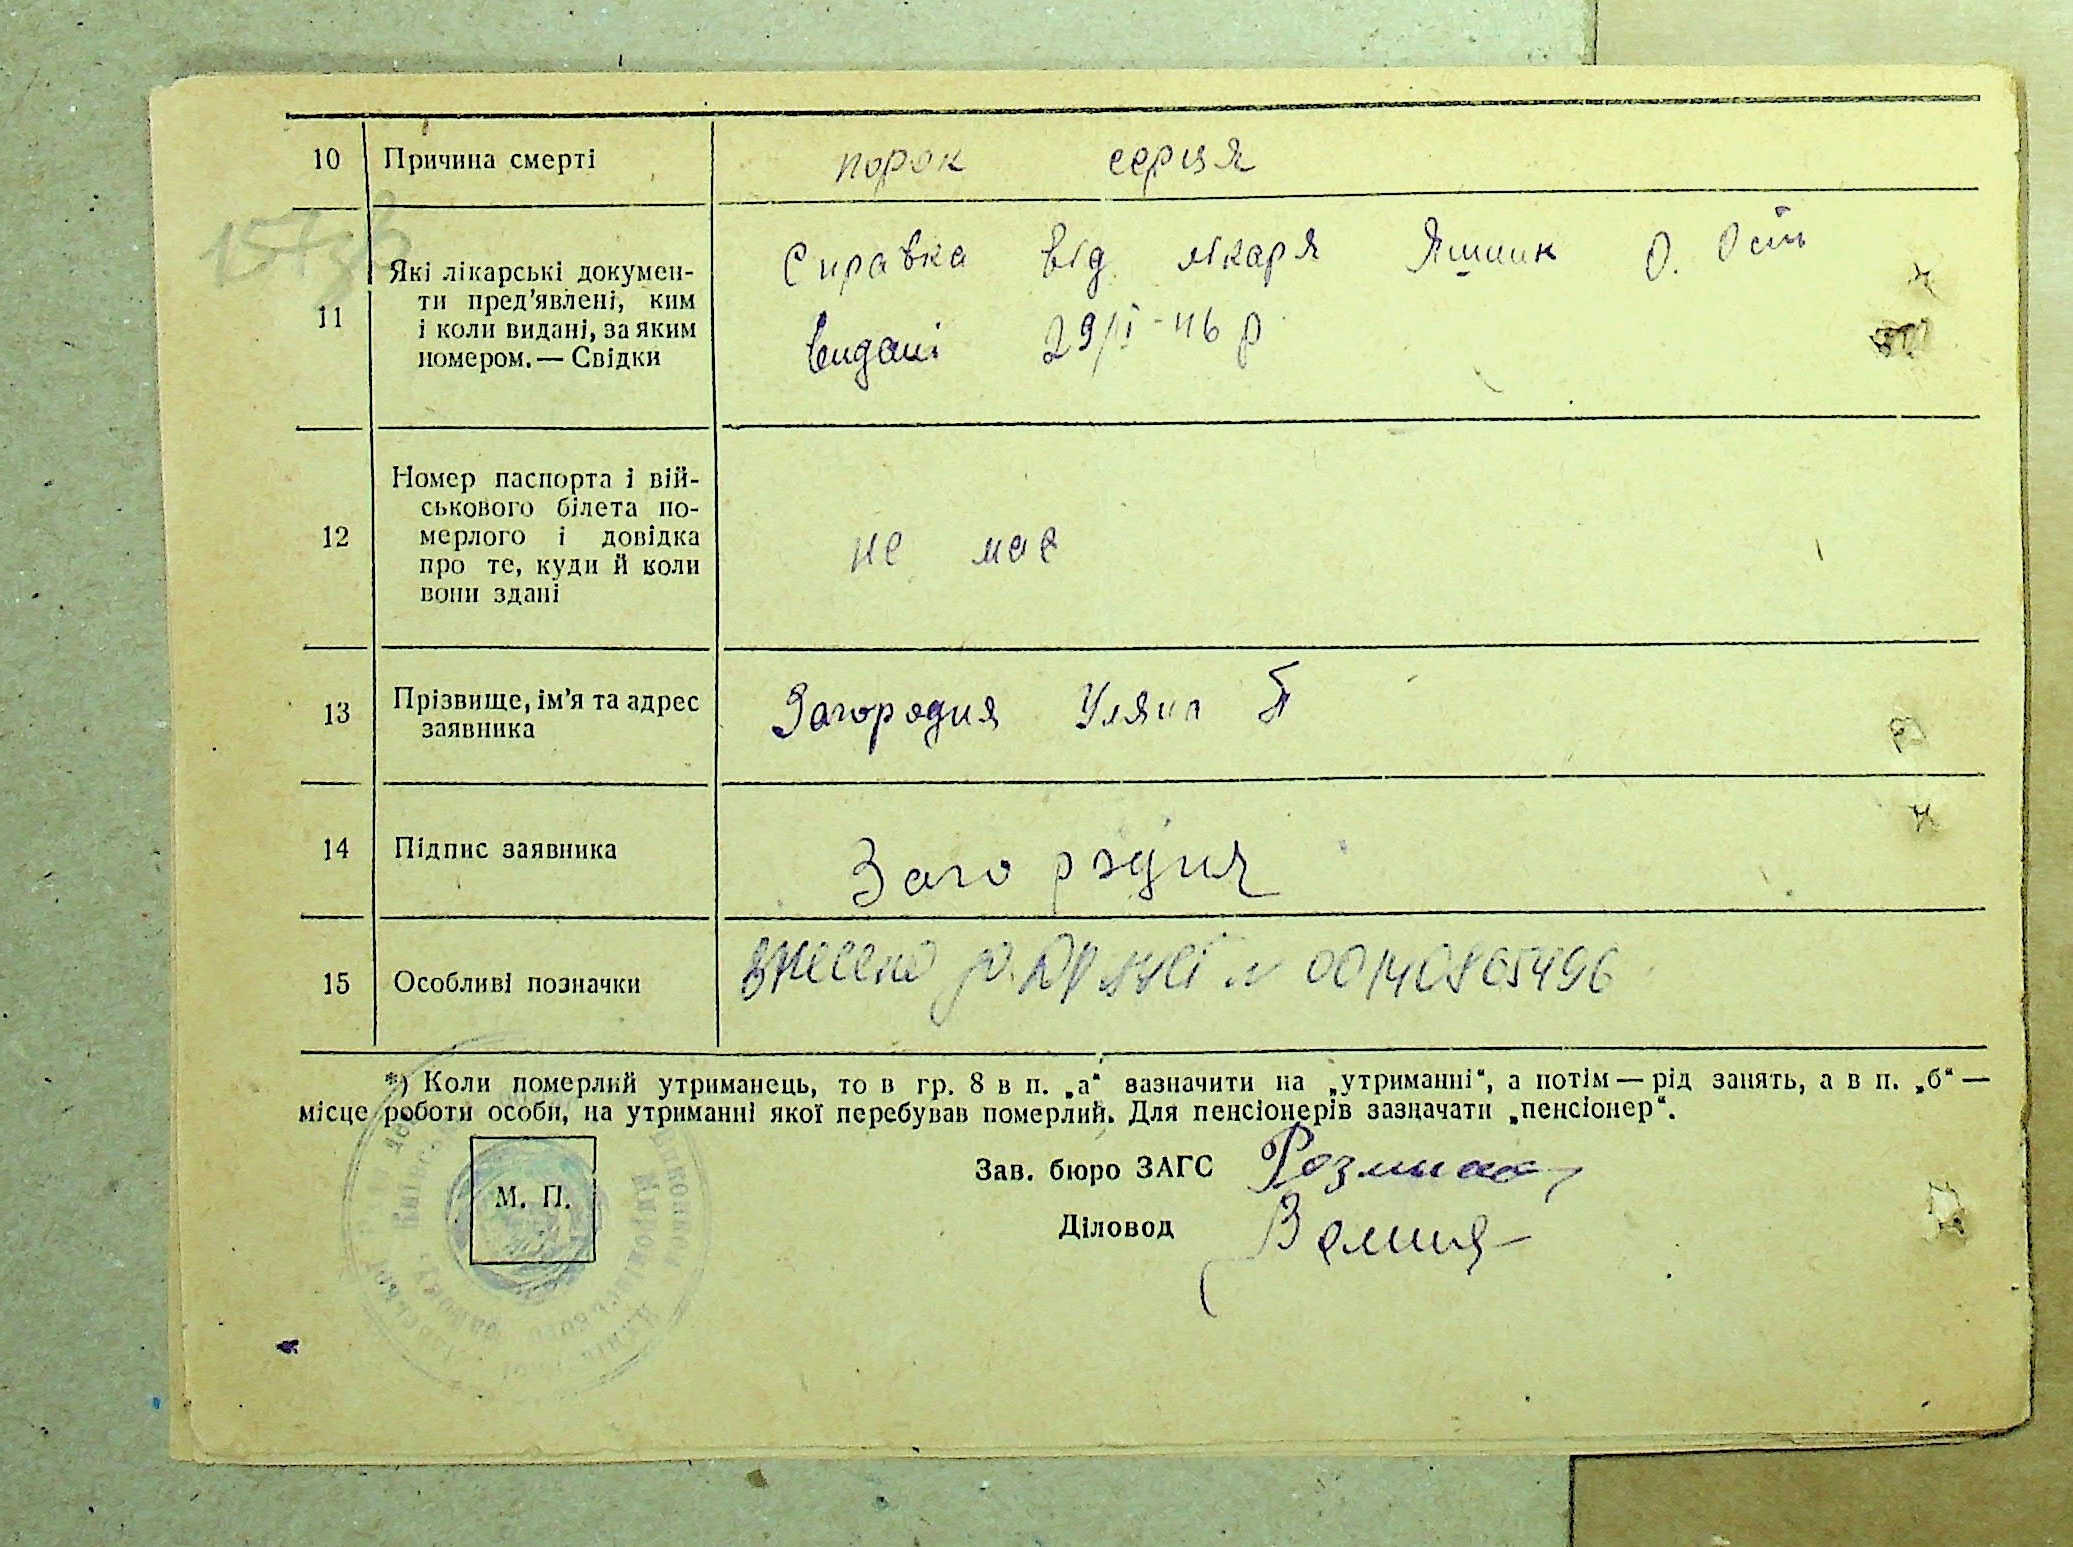 10 Причина смерті порок серця
11 Які лікарські докумен-
ти пред'явлені, ким
і коли видані, за яким
номером. — Свідки
Справка від лікаря Яшник О. Ост
видані 29/I-46 р
12 Номер паспорта і вій-
ськового білета по-
мерлого і довідка
про те, куди й коли
вони здані
не має
13 Прізвище, ім'я та адрес
заявника
Загородня Уляна П
14 Підпис заявника Загородня
15 Особливі позначки внесено до 00140865496
*) Коли померлий утриманець, то в гр. 8 в п. „а“ вазначити на „утриманні“, а потім — рід занять, а в п. „б“ —
місце роботи особи, на утриманні якої перебував померлий. Для пенсіонерів зазначати „пенсіонер“.
М. П.
Зав. бюро ЗАГС
Діловод